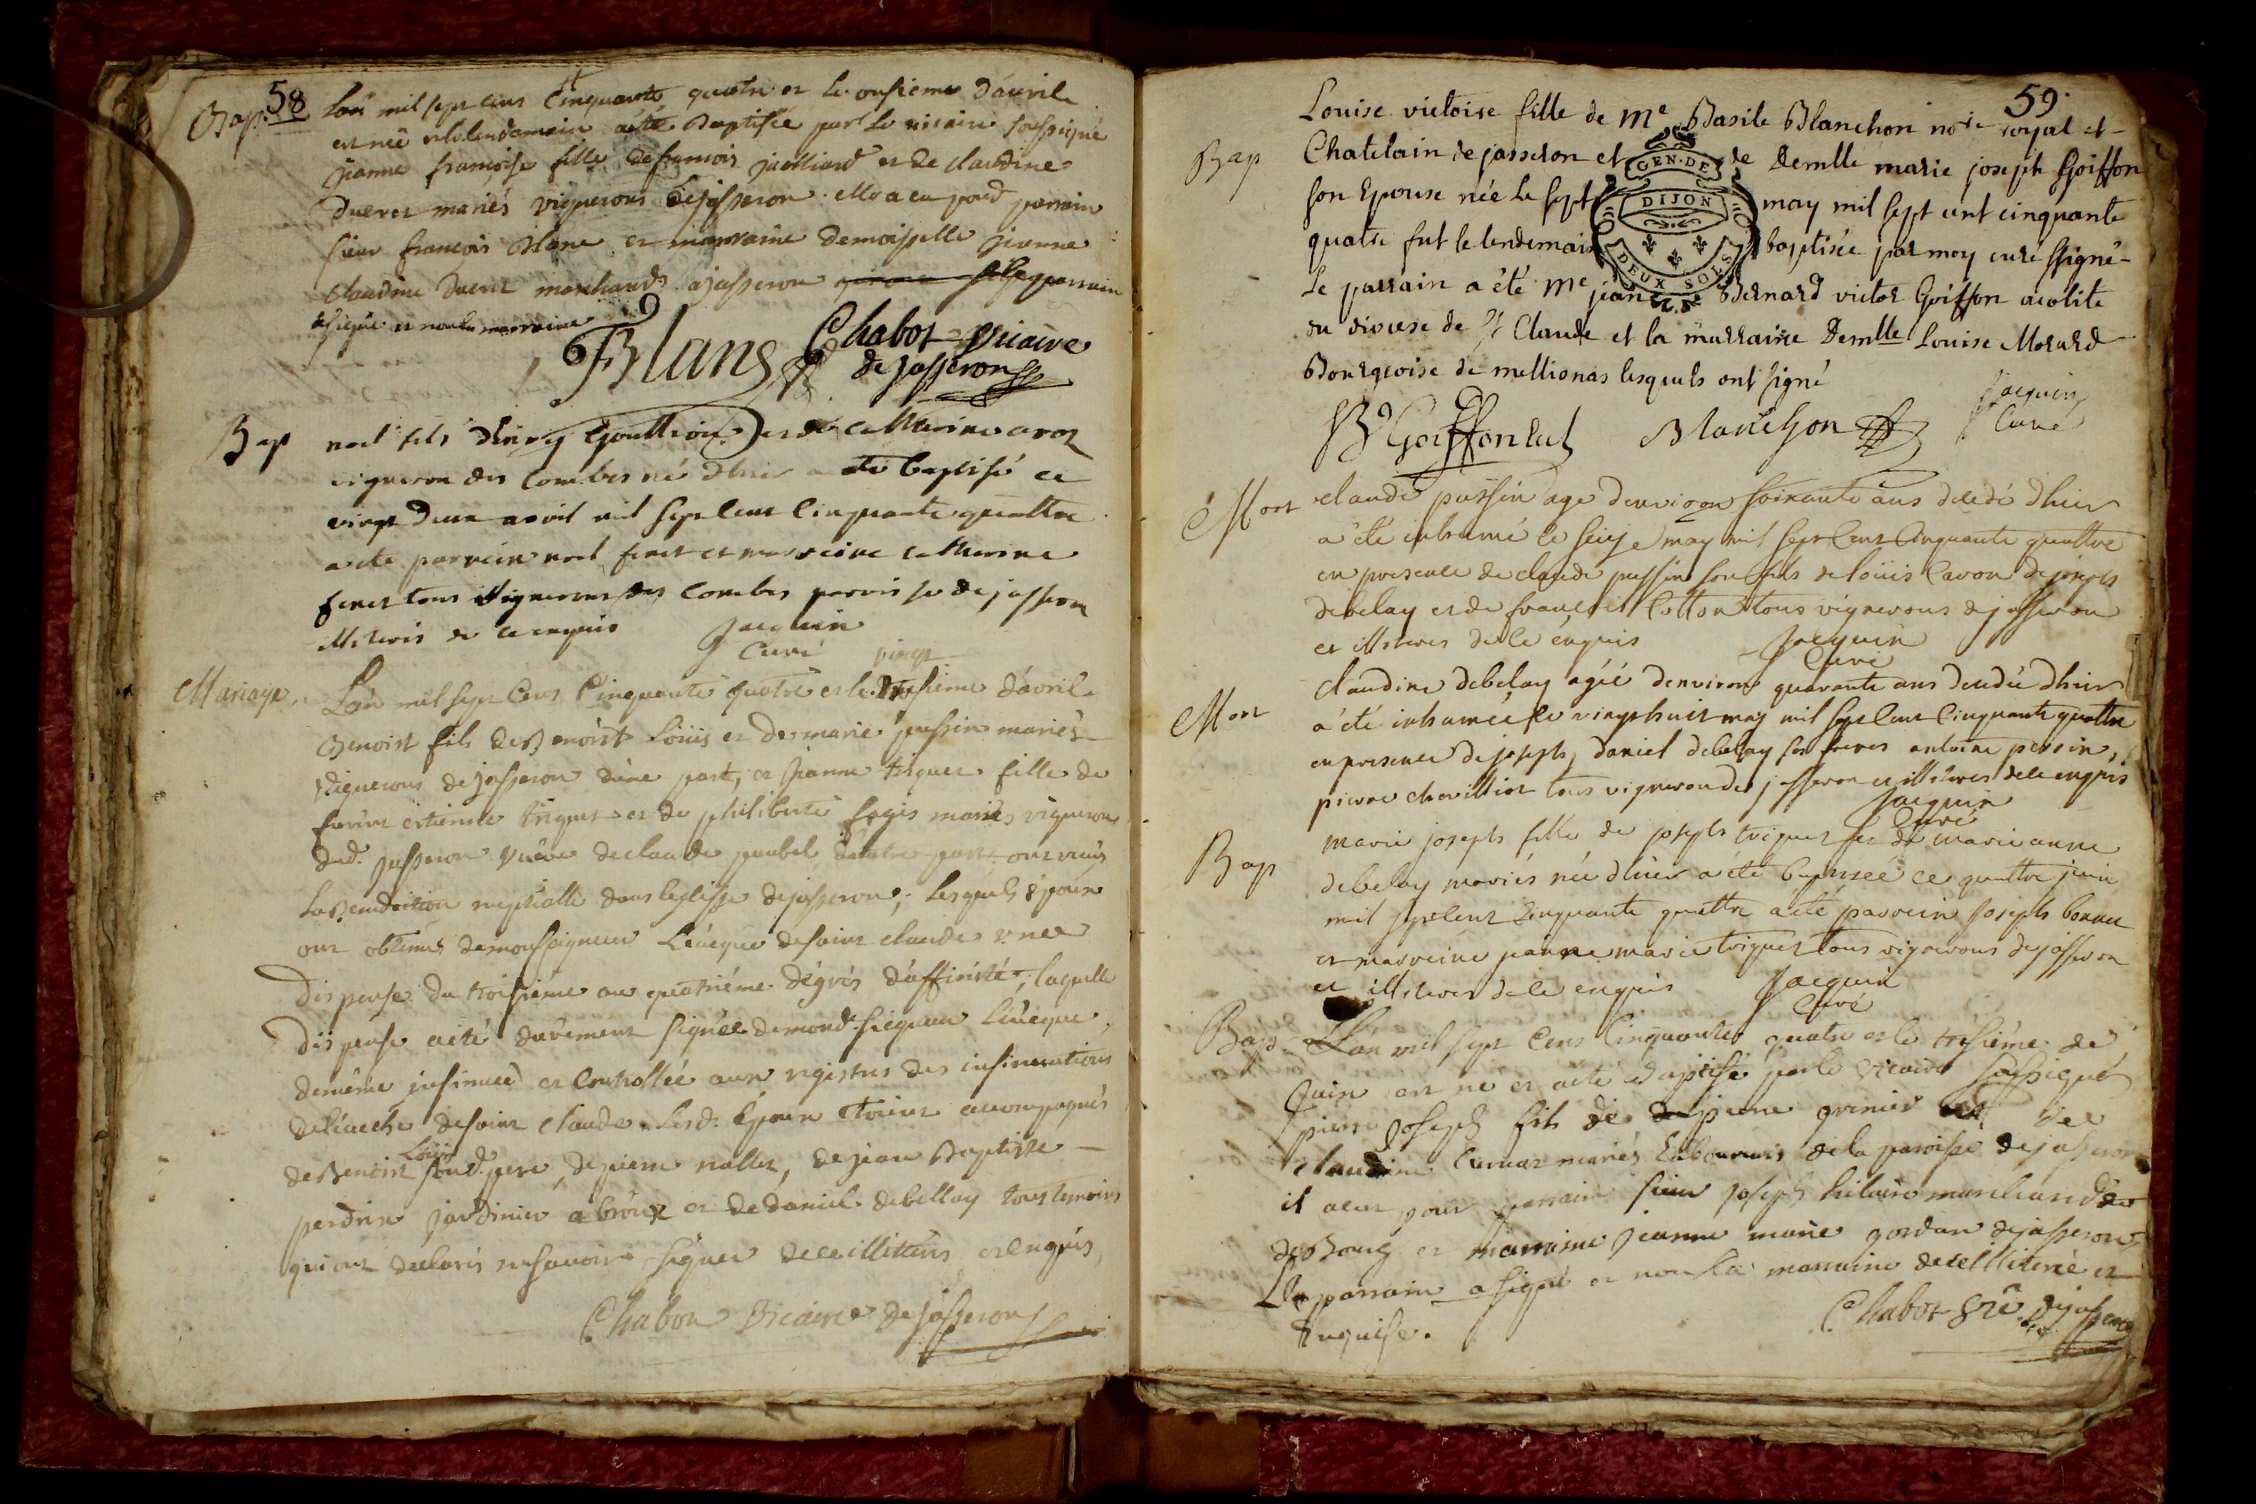 58
Bap. L'an mil sept cens Cinquante quatre et le onsieme d'avril
est née et le lendemain a été Baptisée par le vicaire soussigné
jeanne francoise fille de francois juilliard et de claudine
Dueret mariés vignerons de jasseron elle a eu pour parrain
sieur francois Blanc et marraine demoisselle jeanne
Claudine Dueret marchands a jasseron le parrain
a signé et non la marraine
Blanc Chabot vicaire
de jasseron
Bap noel fils d'hinry Goullion et de catherine
vigneron des Combes né d'hier a été baptisé ce
vingt deux avril mil sept cent cinquante quattre
a été parrein noel feret et marreine catherine
feret tous vignerons des combes parroisse de jasseron
illiterés de ce enquis Jacquin
Curé
vingt
Mariage. L'an mil sept Cens Cinquante quatre et le troisieme d'avril
Benoist fils de Benoist Loüis et de marie pussin mariés
vignerons de jasseron d'une part, et jeanne triquet fille de
furent etienne triquet et de philiberte mariés vignerons
dud. jasseron veuve de claude d'autre part ont reçus
la Benediction nuptialle dans leglisse de jasseron, lesquels époux
ont obtenus de monseigneur L'évêque de saint claude une
dispense du troisieme au quatriéme dégrés d'affinité, laquelle
dispense a été duement signée de mond. seigneur L'évêque,
de même insinuée et Controllée aux registres des insinuations
de l'évêché de saint Claude. Lesd. Époux étoient accompagnés
de Benoist Loüis sond. pere, de pierre nallet, de jean Baptiste
perdrix jardinier a broux et de daniel debellay tous temoins
qui ont declarés ne savoir signer de ce illitérés et enquis,
Chabot Vicaire de jasseron
59.
Louise victoire fille de Me Basile Blanchon nore royal et
Bap Chatelain de jasseron et de Demlle marie joseph Goiffon
GEN. DE
DIJON
DEUX SOLS
son Epouse née le sept may mil sept cent cinquante
quatre fut le lendemain baptisée par moy curé ssigné
le parrain a été Me jean Bernard victor Goiffon acolite
du diocese de St Claude et la marraine Demlle Louise Morard
Bourgeoise de mellionas lesquels ont signé
B Goiffon Blanchon Jacquin
Curé
Mort claude pussin age d'environ soixante ans decédé d'hier
a été inhumé le seize may mil sept cent cinquante quattre
en presence de claude pussin son fils de loüis de joseph
debelay et de françois tous vignerons de jasseron
et illiteres de ce enquis Jacquin
Curé
Mort claudine debelay agée d'environ quarante ans decédée d'hier
a été inhumée le vingt huit may mil sept cent cinquante quattre
en presence de joseph, daniel debelay ses freres antoine perrin,
pierre chevilliot tous vigneron de jasseron et illiteres de ce enquis
Jacquin
Curé
Bap marie joseph fille de joseph triquet et de marie anne
debelay mariés née d'hier a été baptisée ce quattre juin
mil sept cent cinquante quattre a été parrein joseph bonnet
et marreine jeanne marie triquet tous vignerons de jasseron
et illiteres de ce enquis Jacquin
Curé
Bap. L'an mil sept Cens Cinquante quatre et le treisiéme de
juin est né et a été Baptisé par le vicaire soussigné
pierre joseph fils de pierre grenier et de
claudine mariés Laboureurs de la paroisse de jasseron
il a eu pour parrain sieur joseph hilaire marchand
de Bourg et marraine jeanne marie gordan de jasseron
Le parrain a signé et non la marraine de ce illiterée et
Enquise. Chabot vre de jasseron